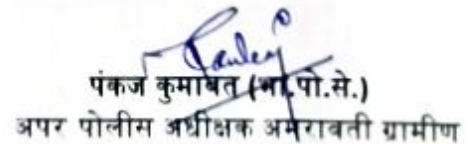 पंकज कुमावत (भा.पो.से.)
अपर पोलीस अधीक्षक अमरावती ग्रामीण